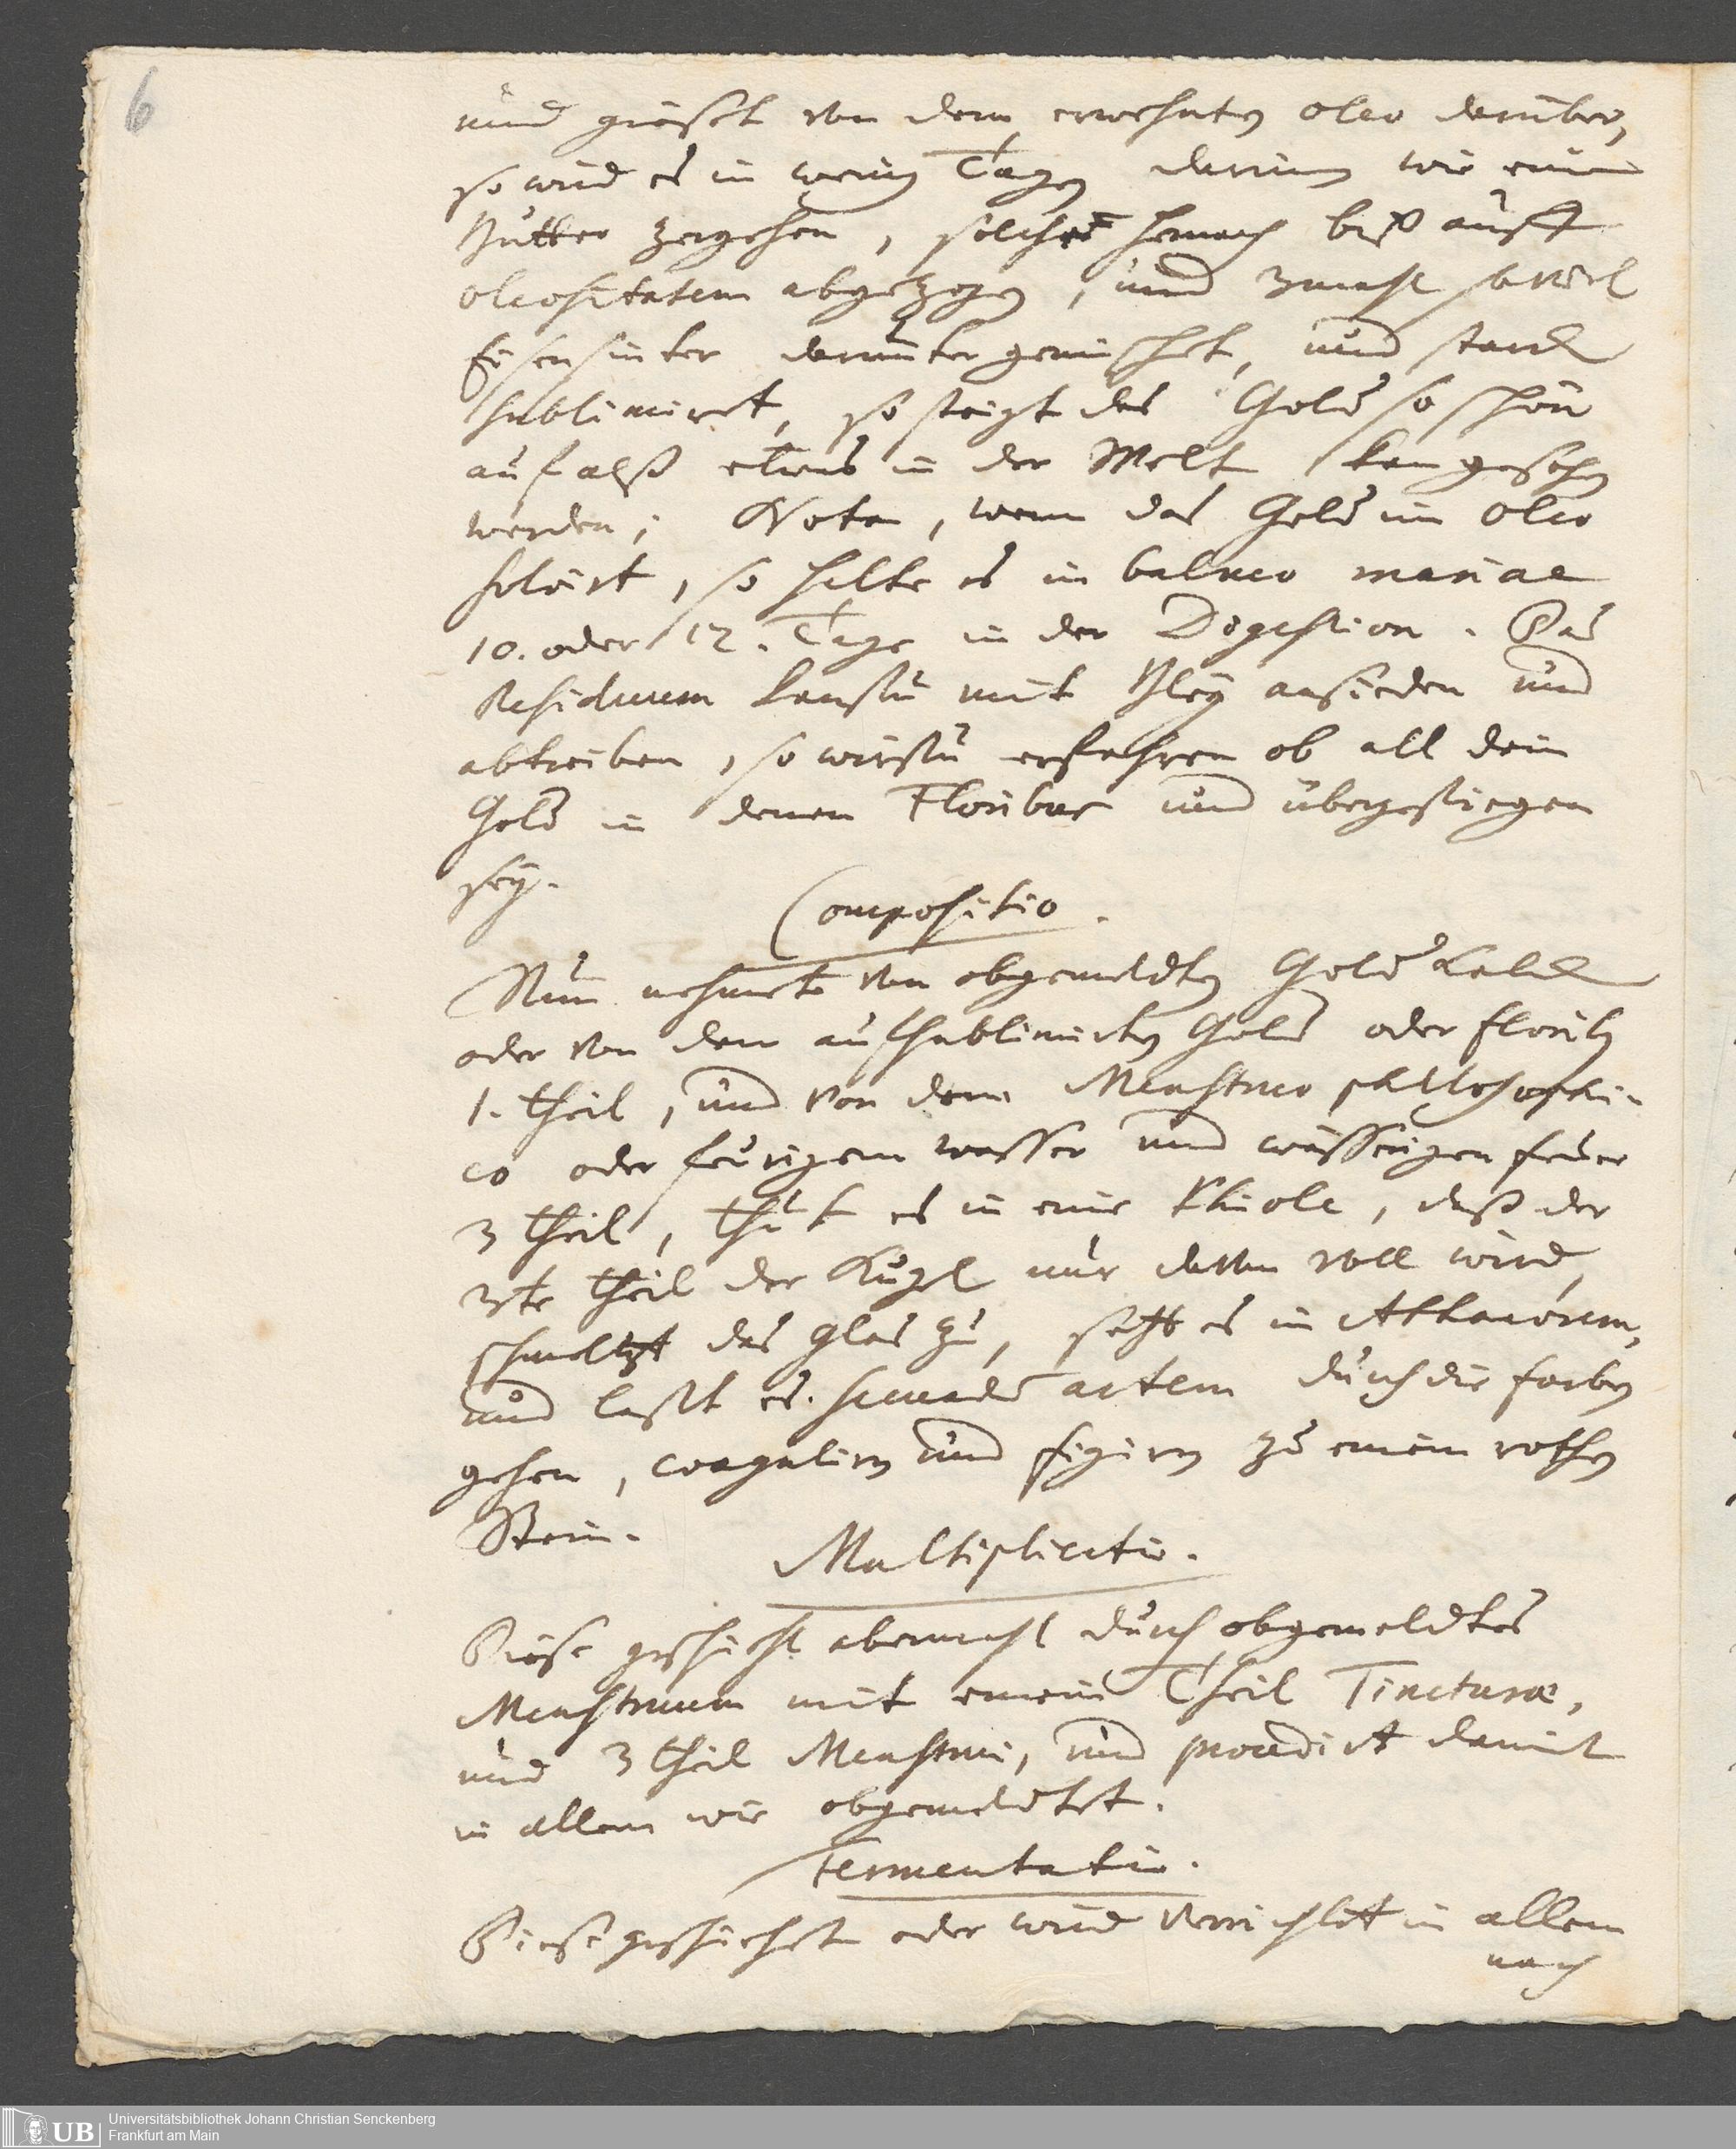 6
und gießt von dem erwehnten oleo darüber,
so wird es in wenig Tagen darinn wie eine
Butter zergehen, solches hernach biß auff
oleositatem abgezogen, und 3mahl so viel
Eisensinter darunter gemischet, und starck
sublimirt, so steigt das Gold so schön
auf alß etwas in der Welt kan gesehen
werden; Nota, wenn das Gold im Oleo
solvirt, so halte es in balneo mariae
10. oder 12. Tage in der Digestion. Das
Residuum kanstu mit Bley ansieden und
abtreiben, so wirstu erfahren ob all dein
Gold in denen Floribus und übergestiegen
sey.
Compositio.
Nun nehmet von obgemeldten Gold Kalck
oder von dem aufsublimirten Gold oder floribus
1. theil, und von dem Menstruo philosophi-
co oder feurigem wasser und wässerigen feuer
3 theil, thut es in eine Phiole, daß der
3te theil der Kugel nur davon voll wird,
schmeltzt das Glas zu, setzt es in Athanorem,
und laßt es secundum artem durch die farben
gehen, coaguliren und figiren zu einem rothen
Stein.
Multiplicatio.
Diese geschicht abermahl durch obgemeldtes
Menstruum mit einem Theil Tincturae,
und 3 theil Menstrui, und procedirt damit
in allem wie obgemeldtet.
Fermentatio.
Diese geschiehet oder wird verrichtet in allem
nach
UB Universitätsbibliothek Johann Christian Senckenberg
Frankfurt am Main